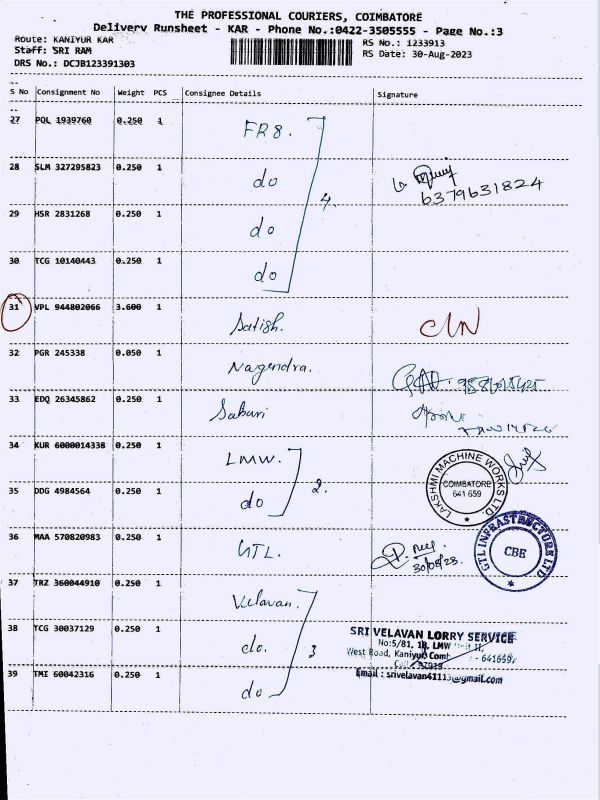 THE PROFESSIONAL COURIERS, COIMBATORE
Delivery Runsheet - KAR - Phone No.:0422-3505555 - Page No.:3
Route: KANIYUR KAR
RS No.: 1233913
Staff: SRI RAM
RS Date: 30-Aug-2023
DRS No.: DCJB123391303
S No Consignment No Weight PCS Consignee Details Signature
27 PQL 1939760 0.250 1 FR8.
28 SLM 327295823 0.250 1 do
6379631824
4.
29 HSR 2831268 0.250 1 do
30 TCG 10140443 0.250 1 do
31 VPL 944802066 3.600 1 Satish.
32 PGR 245338 0.050 1 Nagendra.
33 EDQ 26345862 0.250 1 Sabari
34 KUR 6000014338 0.250 1 LMW.
LAKSHMI MACHINE WORKS LTD
COIMBATORE
641 659
35 DDG 4984564 0.250 1 do 2.
36 MAA 570820983 0.250 1 GTL.
30/08/23.
GTL INFRASTRUCTURE LTD
CBE
37 TRZ 360044910 0.250 1 Velavan.
38 TCG 30037129 0.250 1 do. 3
SRI VELAVAN LORRY SERVICE
No:5/81, 1B, LMW Unit II,
West Road, Kaniyur
Email : srivelavan41113@gmail.com
39 TMI 60042316 0.250 1 do